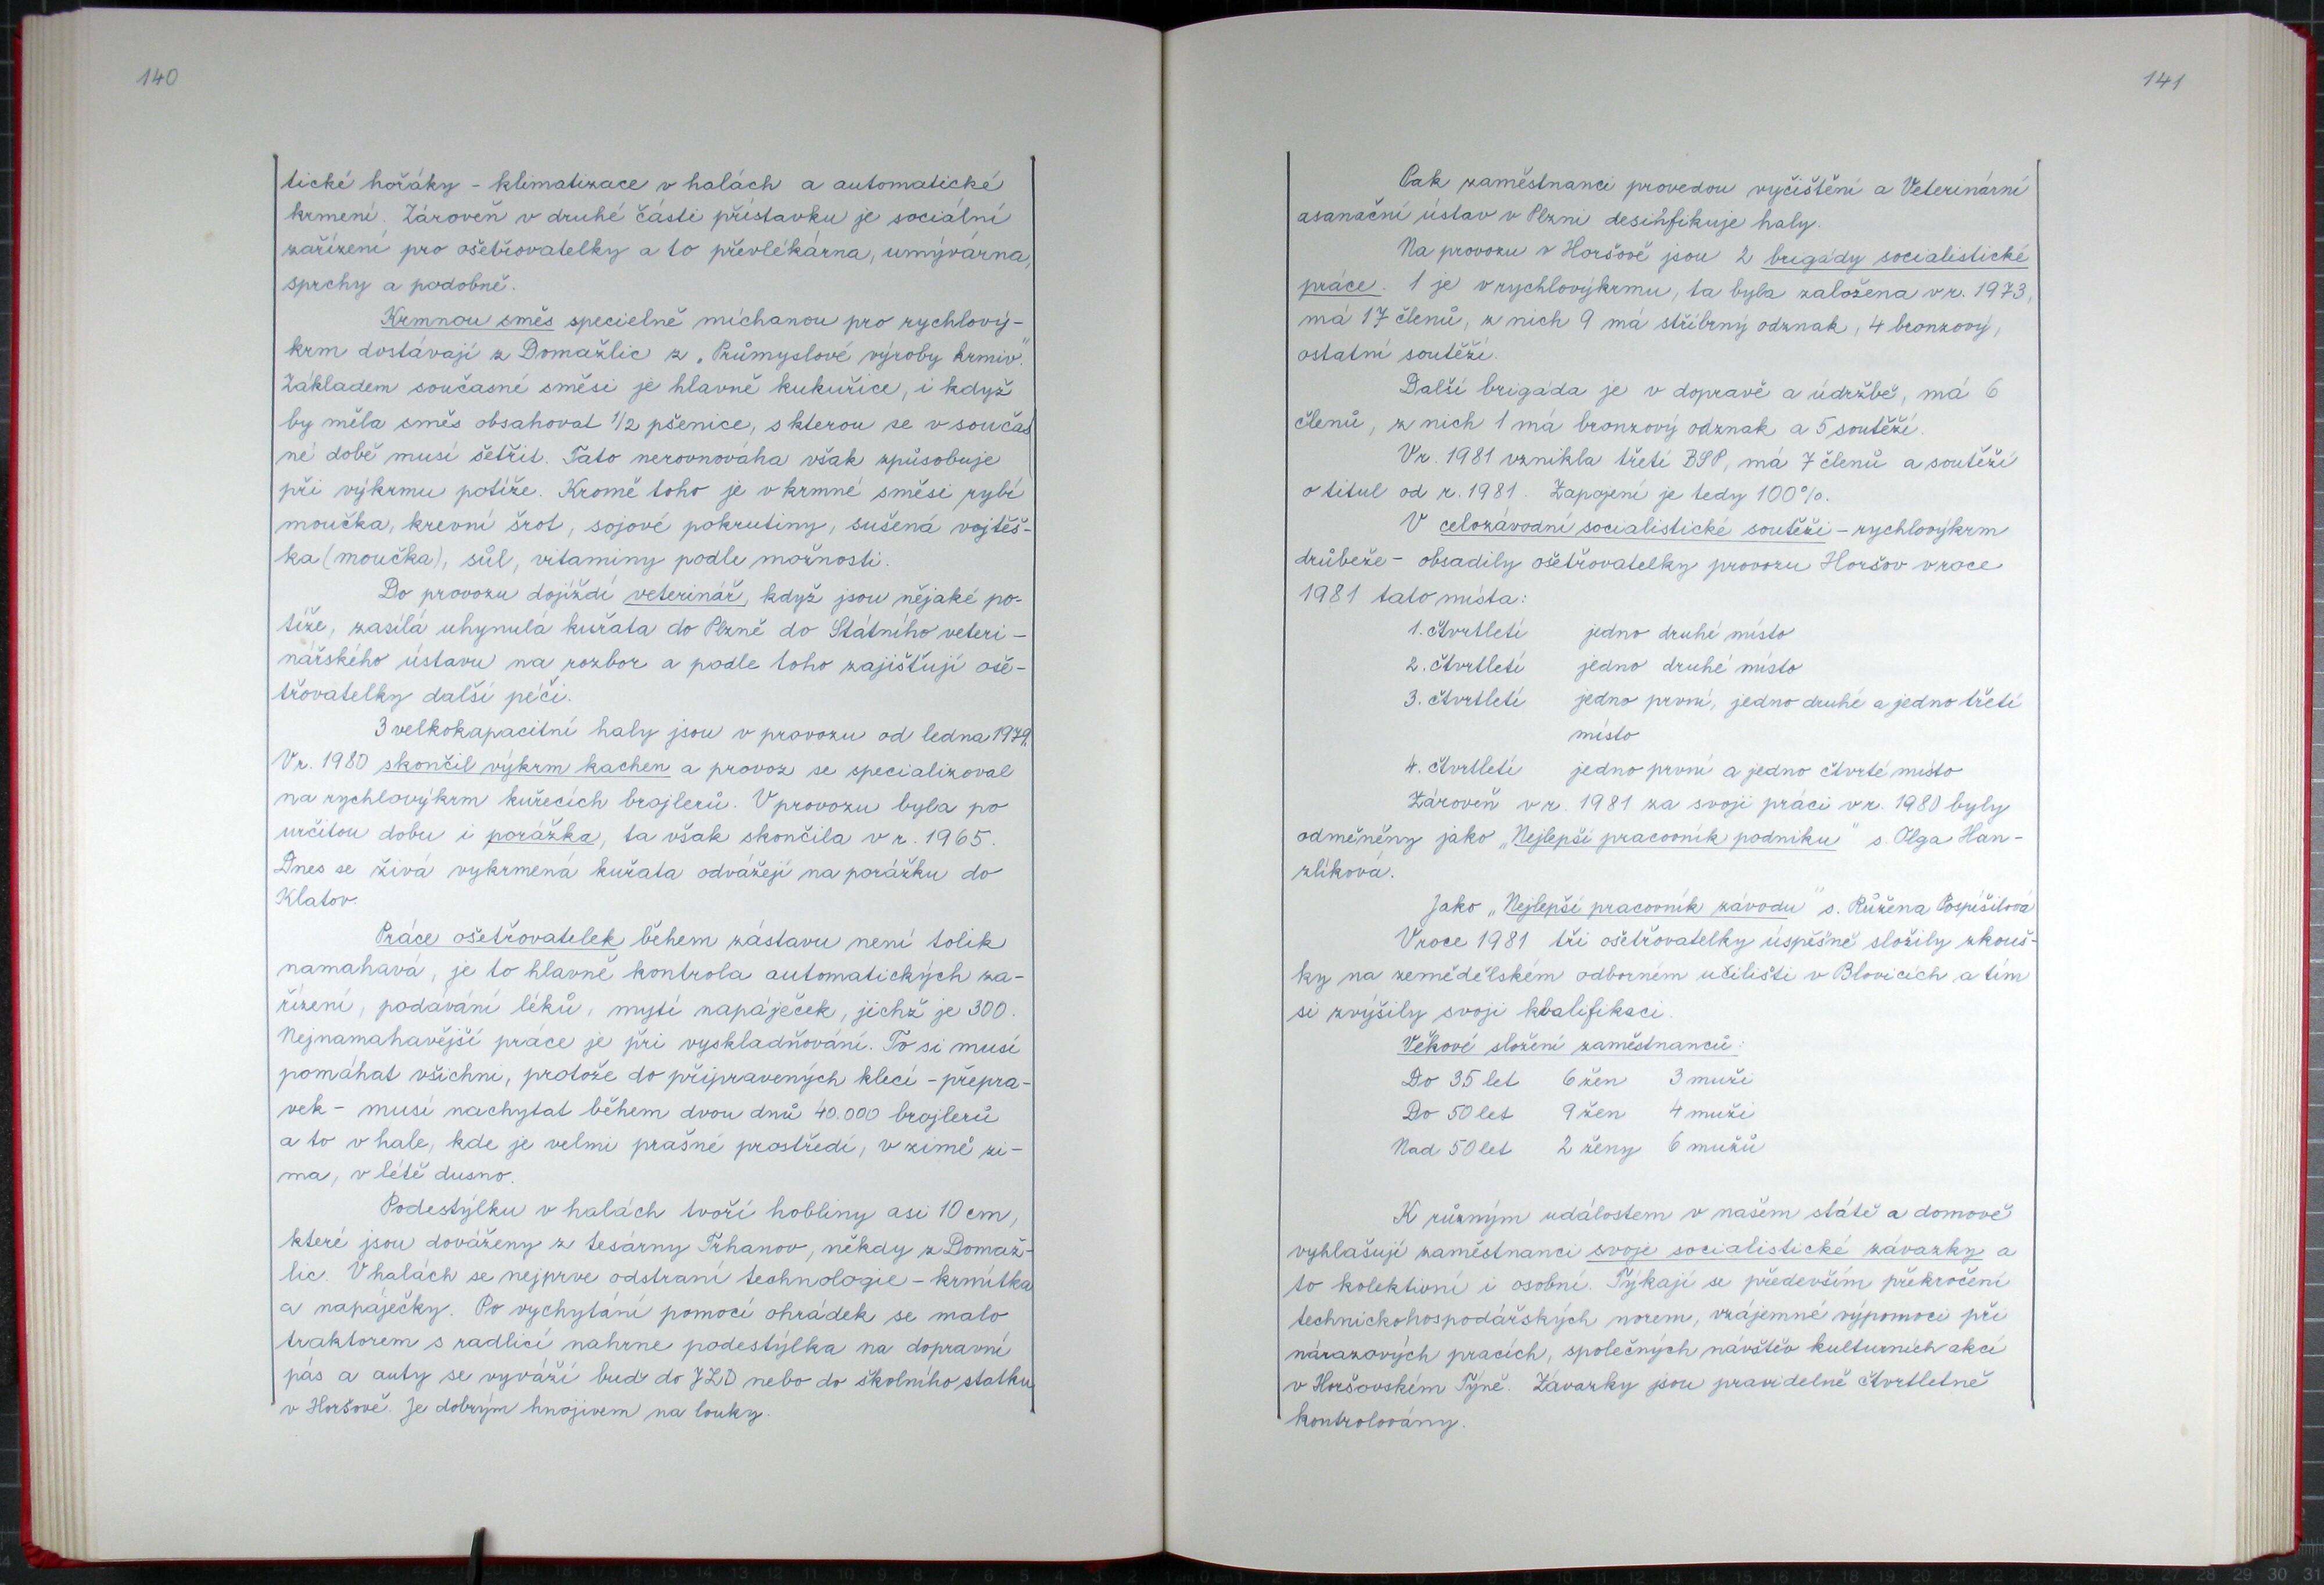 140
tické hořáky - klimatizace v halách a automatické
krmení. Zároveň v druhé části přístavku je sociální
zařízení pro ošetřovatelky a to převlékárna, umývárna,
sprchy a podobně.
Krmnou směs specielně míchanou pro rychlový-
krm dostávají z Domažlic z „Průmyslové výroby krmiv".
Základem současné směsi je hlavně kukuřice, i když
by měla směs obsahovat 1/2 pšenice, s kterou se v součas
né době musí šetřit. Tato nerovnováha však způsobuje
při výkrmu potíže. Kromě toho je v krmné směsi rybí
moučka, krevní šrot, sojové pokrutiny, sušená vojtěš-
ka (moučka), sůl, vitaminy podle možnosti.
Do provozu dojíždí veterinář, když jsou nějaké po-
tíže, zasílá uhynulá kuřata do Plzně do Státního veteri-
nářského ústavu na rozbor a podle toho zajišťují oše-
třovatelky další péči.
3 velkokapacitní haly jsou v provozu od ledna 1979.
V r. 1980 skončil výkrm kachen a provoz se specializoval
na rychlovýkrm kuřecích brojlerů. V provozu byla po
určitou dobu i porážka, ta však skončila v r. 1965.
Dnes se živá vykrmená kuřata odvážejí na porážku do
Klatov.
Práce ošetřovatelek během zástavu není tolik
namahavá, je to hlavně kontrola automatických za-
řízení, podávání léků, mytí napáječek, jichž je 300.
Nejnamahavější práce je při vyskladňování. To si musí
pomáhat všichni, protože do připravených klecí - přepra-
vek - musí nachytat během dvou dnů 40.000 brojlerů
a to v hale, kde je velmi prašné prostředí, v zimě zi-
ma, v létě dusno.
Podestýlku v halách tvoří hobliny asi 10 cm,
které jsou dováženy z tesárny Trhanov, někdy z Domaž-
lic. V halách se nejprve odstraní technologie - krmítka
a napáječky. Po vychytání pomocí ohrádek se malo
traktorem s radlicí nahrne podestýlka na dopravní
pás a auty se vyváží buď do JZD nebo do školního statku
v Horšově. Je dobrým hnojivem na louky.
141
Pak zaměstnanci provedou vyčištění a Veterinární
asanační ústav v Plzni desinfikuje haly.
Na provozu v Horšově jsou 2 brigády socialistické
práce. 1 je v rychlovýkrmu, ta byla založena v r. 1973,
má 17 členů, z nich 9 má stříbrný odznak, 4 bronzový,
ostatní soutěží.
Další brigáda je v dopravě a údržbě, má 6
členů, z nich 1 má bronzový odznak a 5 soutěží.
V r. 1981 vznikla třetí BSP, má 7 členů a soutěží
o titul od r. 1981. Zapojení je tedy 100%.
V celozávodní socialistické soutěži - rychlovýkrm
drůbeže - obsadily ošetřovatelky provozu Horšov v roce
1981 tato místa:
1. čtvrtletí jedno druhé místo
2. čtvrtletí jedno druhé místo
3. čtvrtletí jedno první, jedno druhé a jedno třetí
místo
4. čtvrtletí jedno první a jedno čtvrté místo
Zároveň v r. 1981 za svoji práci v r. 1980 byly
odměněny jako „Nejlepší pracovník podniku" s. Olga Han-
zlíková.
Jako „Nejlepší pracovník závodu" s. Růžena Pospíšilová
V roce 1981 tři ošetřovatelky úspěšně složily zkouš-
ky na zemědělském odborném učilišti v Blovicích a tím
si zvýšily svoji kvalifikaci.
Věkové složení zaměstnanců:
Do 35 let 6 žen 3 muži
Do 50 let 9 žen 4 muži
Nad 50 let 2 ženy 6 mužů
K různým událostem v našem státě a domově
vyhlašují zaměstnanci svoje socialistické závazky a
to kolektivní i osobní. Týkají se především překročení
technickohospodářských norem, vzájemné výpomoci při
nárazových pracích, společných návštěv kulturních akcí
v Horšovském Týně. Závazky jsou pravidelně čtvrtletně
kontrolovány.